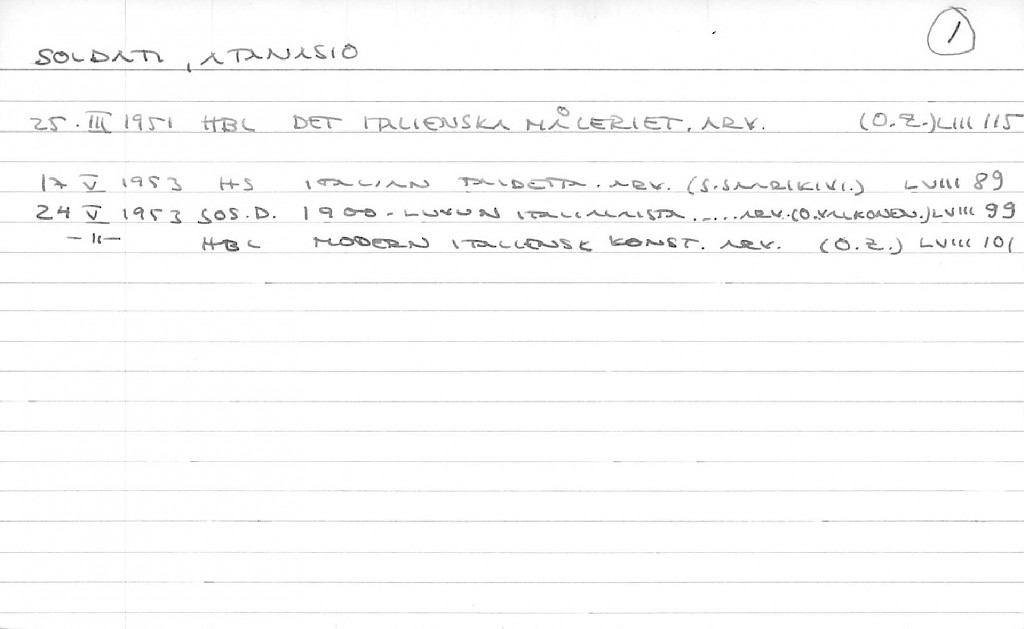 1
SOLDATI, ATANASIO
25. III 1951 HBL DET ITALIENSKA MÅLERIET. ARV. (O.Z.) LIII 115
17 V 1953 HS ITALIAN TAIDETTA. ARV. (S. SAARIKIVI.) LVIII 89
24 V 1953 SOS.D. 1900-LUVUN ITALIALAISTA..... ARV. (O. VALKONEN.) LVIII 99
—"— HBL MODERN ITALIENSK KONST. ARV. (O.Z.) LVIII 101